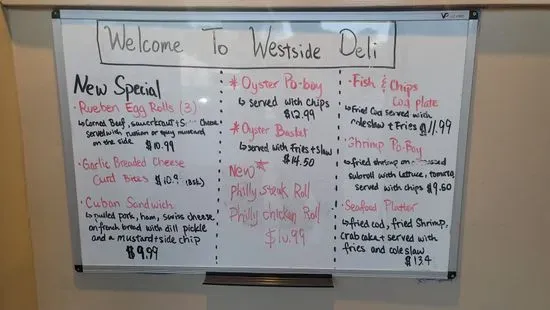 Welcome To Westside Deli
New Special
· Rueben Egg Rolls (3)
↳ Corned Beef, sauerkraut + Cheese
served with russian or spicy mustard
on the side
$10.99
· Garlic Breaded Cheese
Curd Bites
· Cuban Sandwich
↳ pulled pork, ham, swiss cheese
on french bread with dill pickle
and a mustard + side chip
$9.99
* Oyster Po-boy
↳ served with chips
$12.99
* Oyster Basket
↳ served with Fries + Slaw
$14.50
New *
Philly steak Roll
Philly chicken Roll
$10.99
· Fish & Chips
Cod plate
↳ Fried Cod served with
coleslaw + Fries $11.99
· Shrimp Po-Boy
↳ fried shrimp on
subroll with lettuce, tomato,
served with chips $9.50
· Seafood Platter
↳ fried cod, fried Shrimp,
crab cake + served with
fries and coleslaw